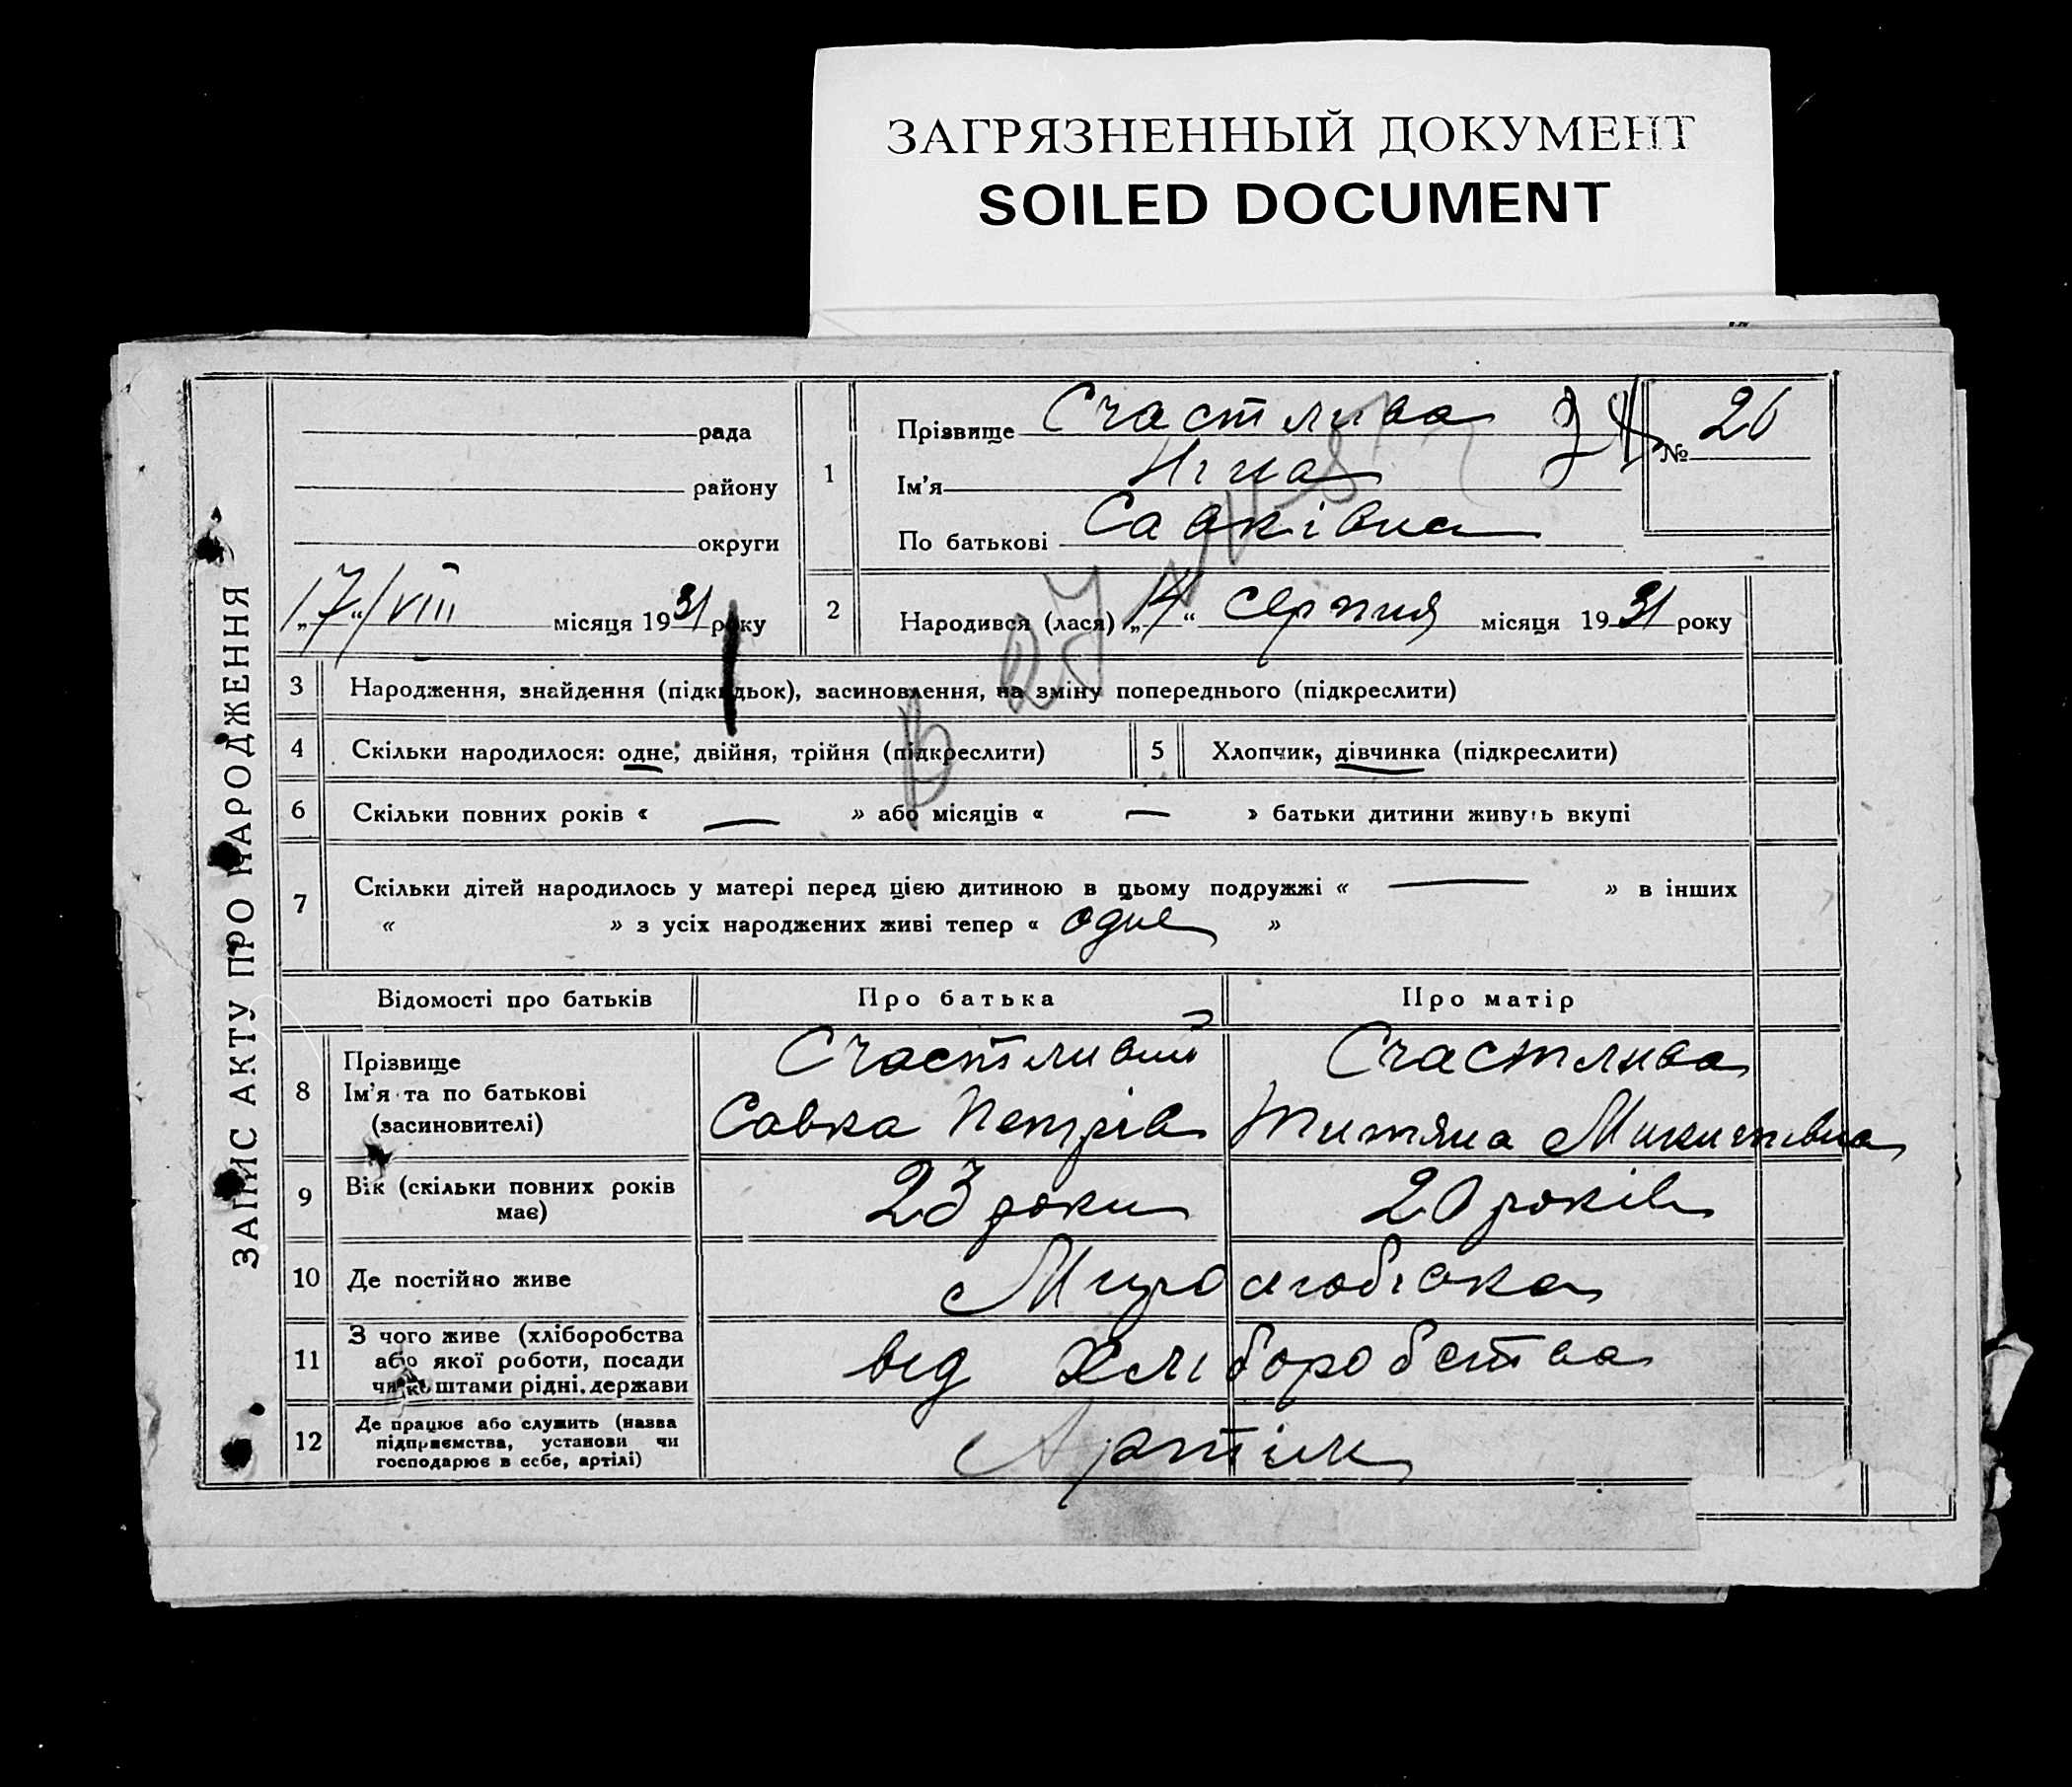 ЗАГРЯЗНЕННЫЙ ДОКУМЕНТ
SOILED DOCUMENT
ЗАПИС АКТУ ПРО НАРОДЖЕННЯ
рада
району
округи
„17“/VIII місяця 1931 року
1
Прізвище Счастлива
Ім'я Ніна
По батькові Савківна
№ 26
2 Народився (лася) „14“ серпня місяця 1931 року
3 Народження, знайдення (підкидьок), засиновлення, на зміну попереднього (підкреслити)
4 Скільки народилося: одне, двійня, трійня (підкреслити)
5 Хлопчик, дівчинка (підкреслити)
6 Скільки повних років « — » або місяців « — » батьки дитини живуть вкупі
7 Скільки дітей народилось у матері перед цією дитиною в цьому подружжі « — » в інших
« » з усіх народжених живі тепер « одне »
Відомості про батьків Про батька Про матір
8 Прізвище
Ім'я та по батькові
(засиновителі)
Счастливий
Савка Петрів
Счастлива
Титяна Микитівна
9 Вік (скільки повних років
має)
23 роки
20 років
10 Де постійно живе
Миролюбівка
11 З чого живе (хліборобства
або якої роботи, посади
чи коштами рідні, держави
від хліборобства
12 Де працює або служить (назва
підприємства, установи чи
господарює в себе, артілі)
Артіли